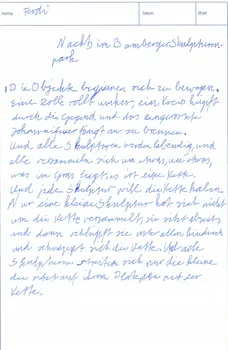 Name Ferdi Datum Blatt
Nachts im Bamberger Skulpturen-
park
Die Objekte beginnen sich zu bewegen.
Eine Rolle rollt umher, ein Kreis hüpft
durch die Gegend und das eingerollte
fängt an zu tanzen.
Und alle Skulpturen werden lebendig, und
alle versammeln sich um etwas, um etwas,
was im Gras liegt, es ist eine Kette.
Und jede Skulptur will die Kette haben
Nur eine kleine Skulptur hat sich nicht
um die Kette versammelt, sie steht abseits
und dann schlüpft sie unter allen hindurch
und schnappt sich die Kette. Und alle
Skulpturen sich nur die kleine
die sitzt auf ihrem mit der
Kette.